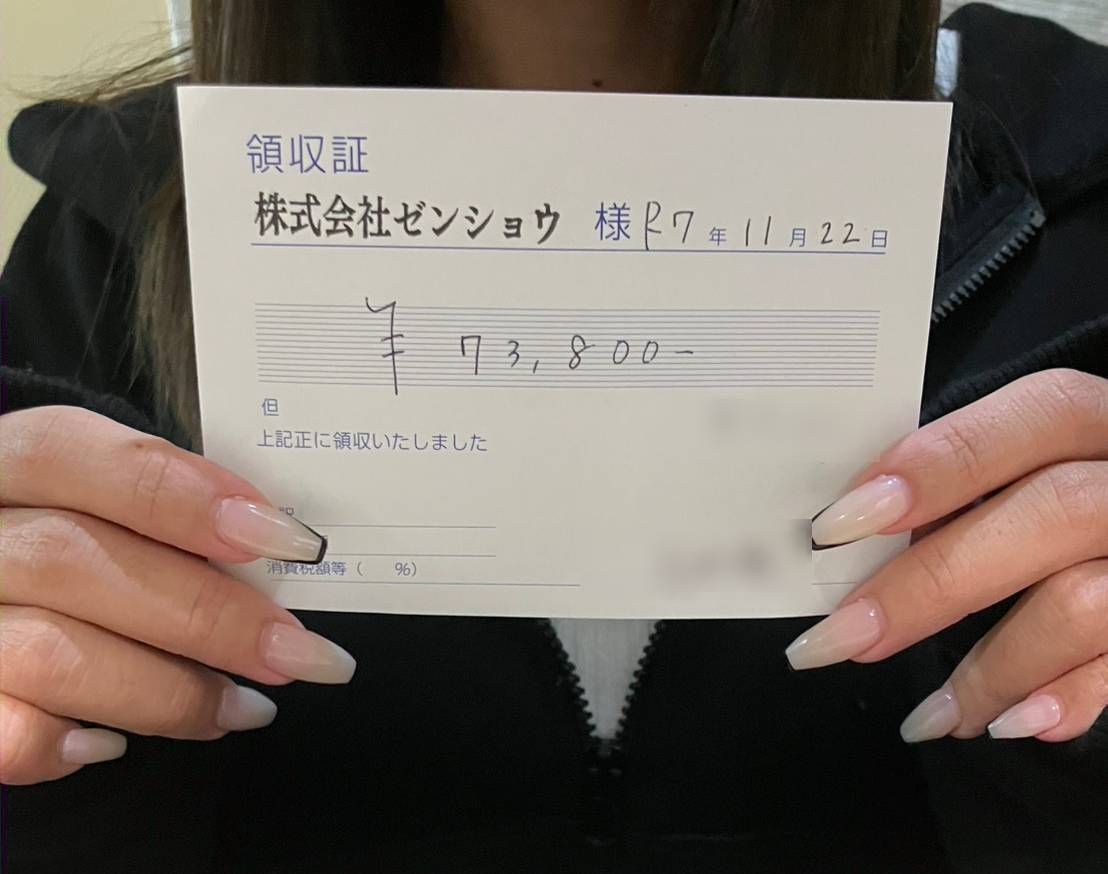 領収証
株式会社ゼンショウ 様 R7年11月22日
¥ 73,800-
但
上記正に領収いたしました
訳
消費税額等( %)